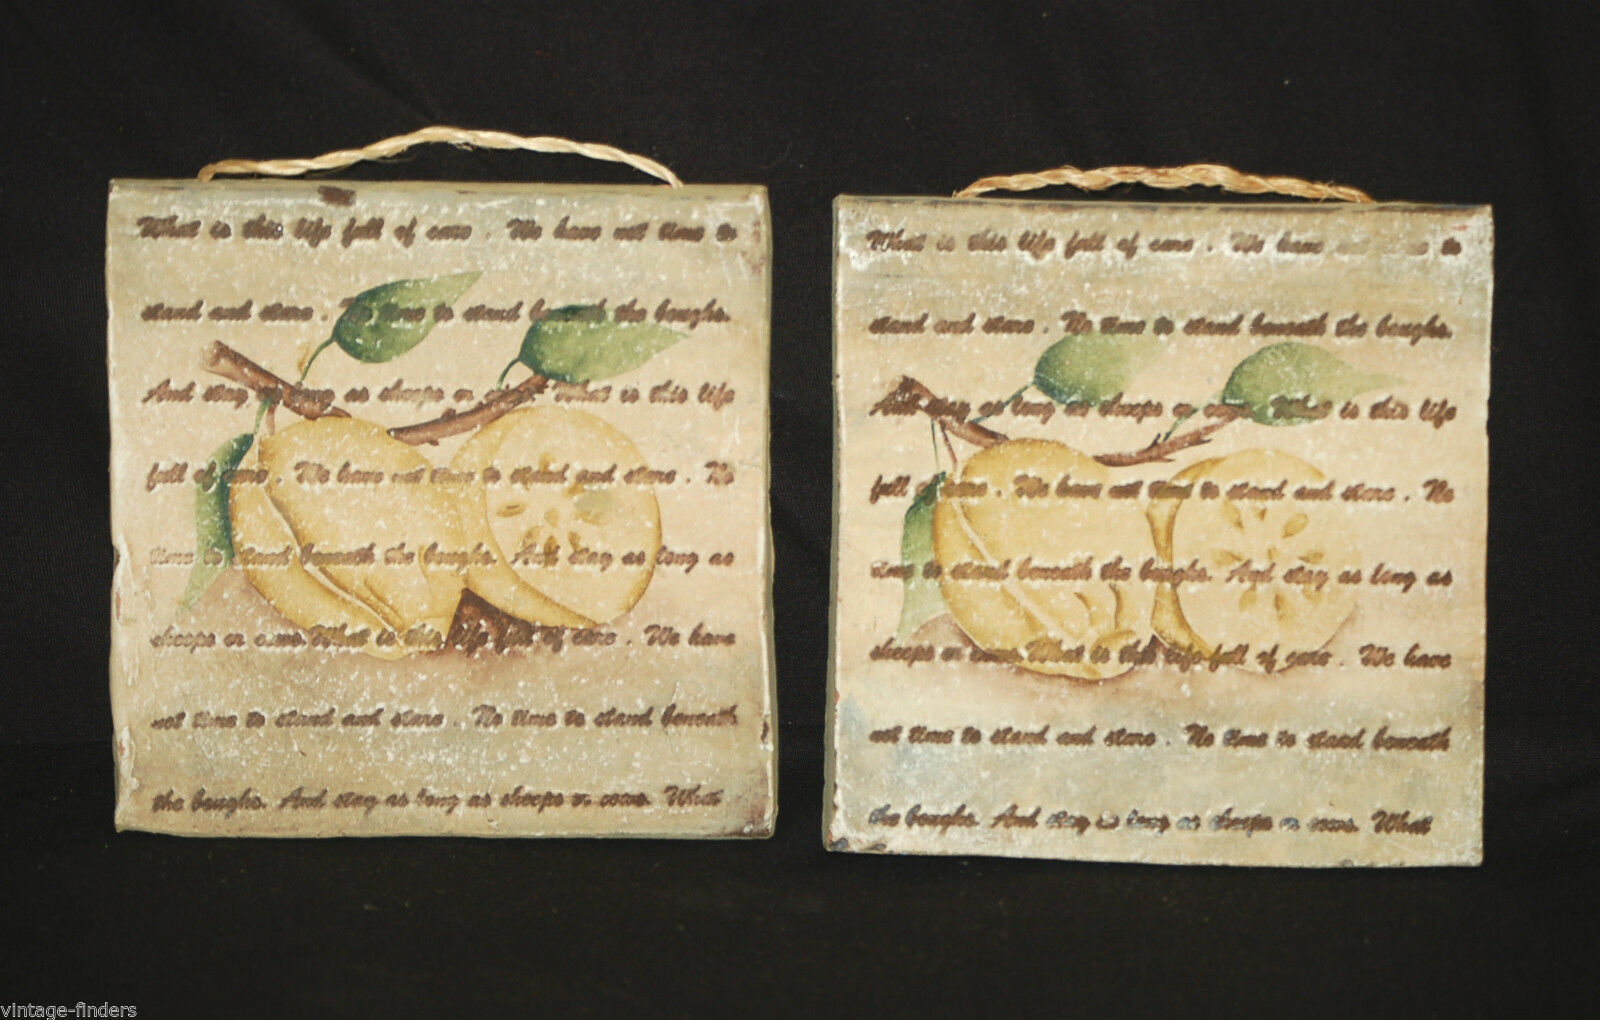 What is this life full of care . We have not time to
stand and stare . No time to stand beneath the boughs.
And stay as long as sheeps or cows. What is this life
full of care . We have not time to stand and stare . No
time to stand beneath the boughs. And stay as long as
sheeps or cows. What is this life full of care . We have
not time to stand and stare . No time to stand beneath
the boughs. And stay as long as sheeps or cows. What
What is this life full of care . We have not time to
stand and stare . No time to stand beneath the boughs.
And stay as long as sheeps or cows. What is this life
full of care . We have not time to stand and stare . No
time to stand beneath the boughs. And stay as long as
sheeps or cows. What is this life full of care . We have
not time to stand and stare . No time to stand beneath
the boughs. And stay as long as sheeps or cows. What
vintage-finders